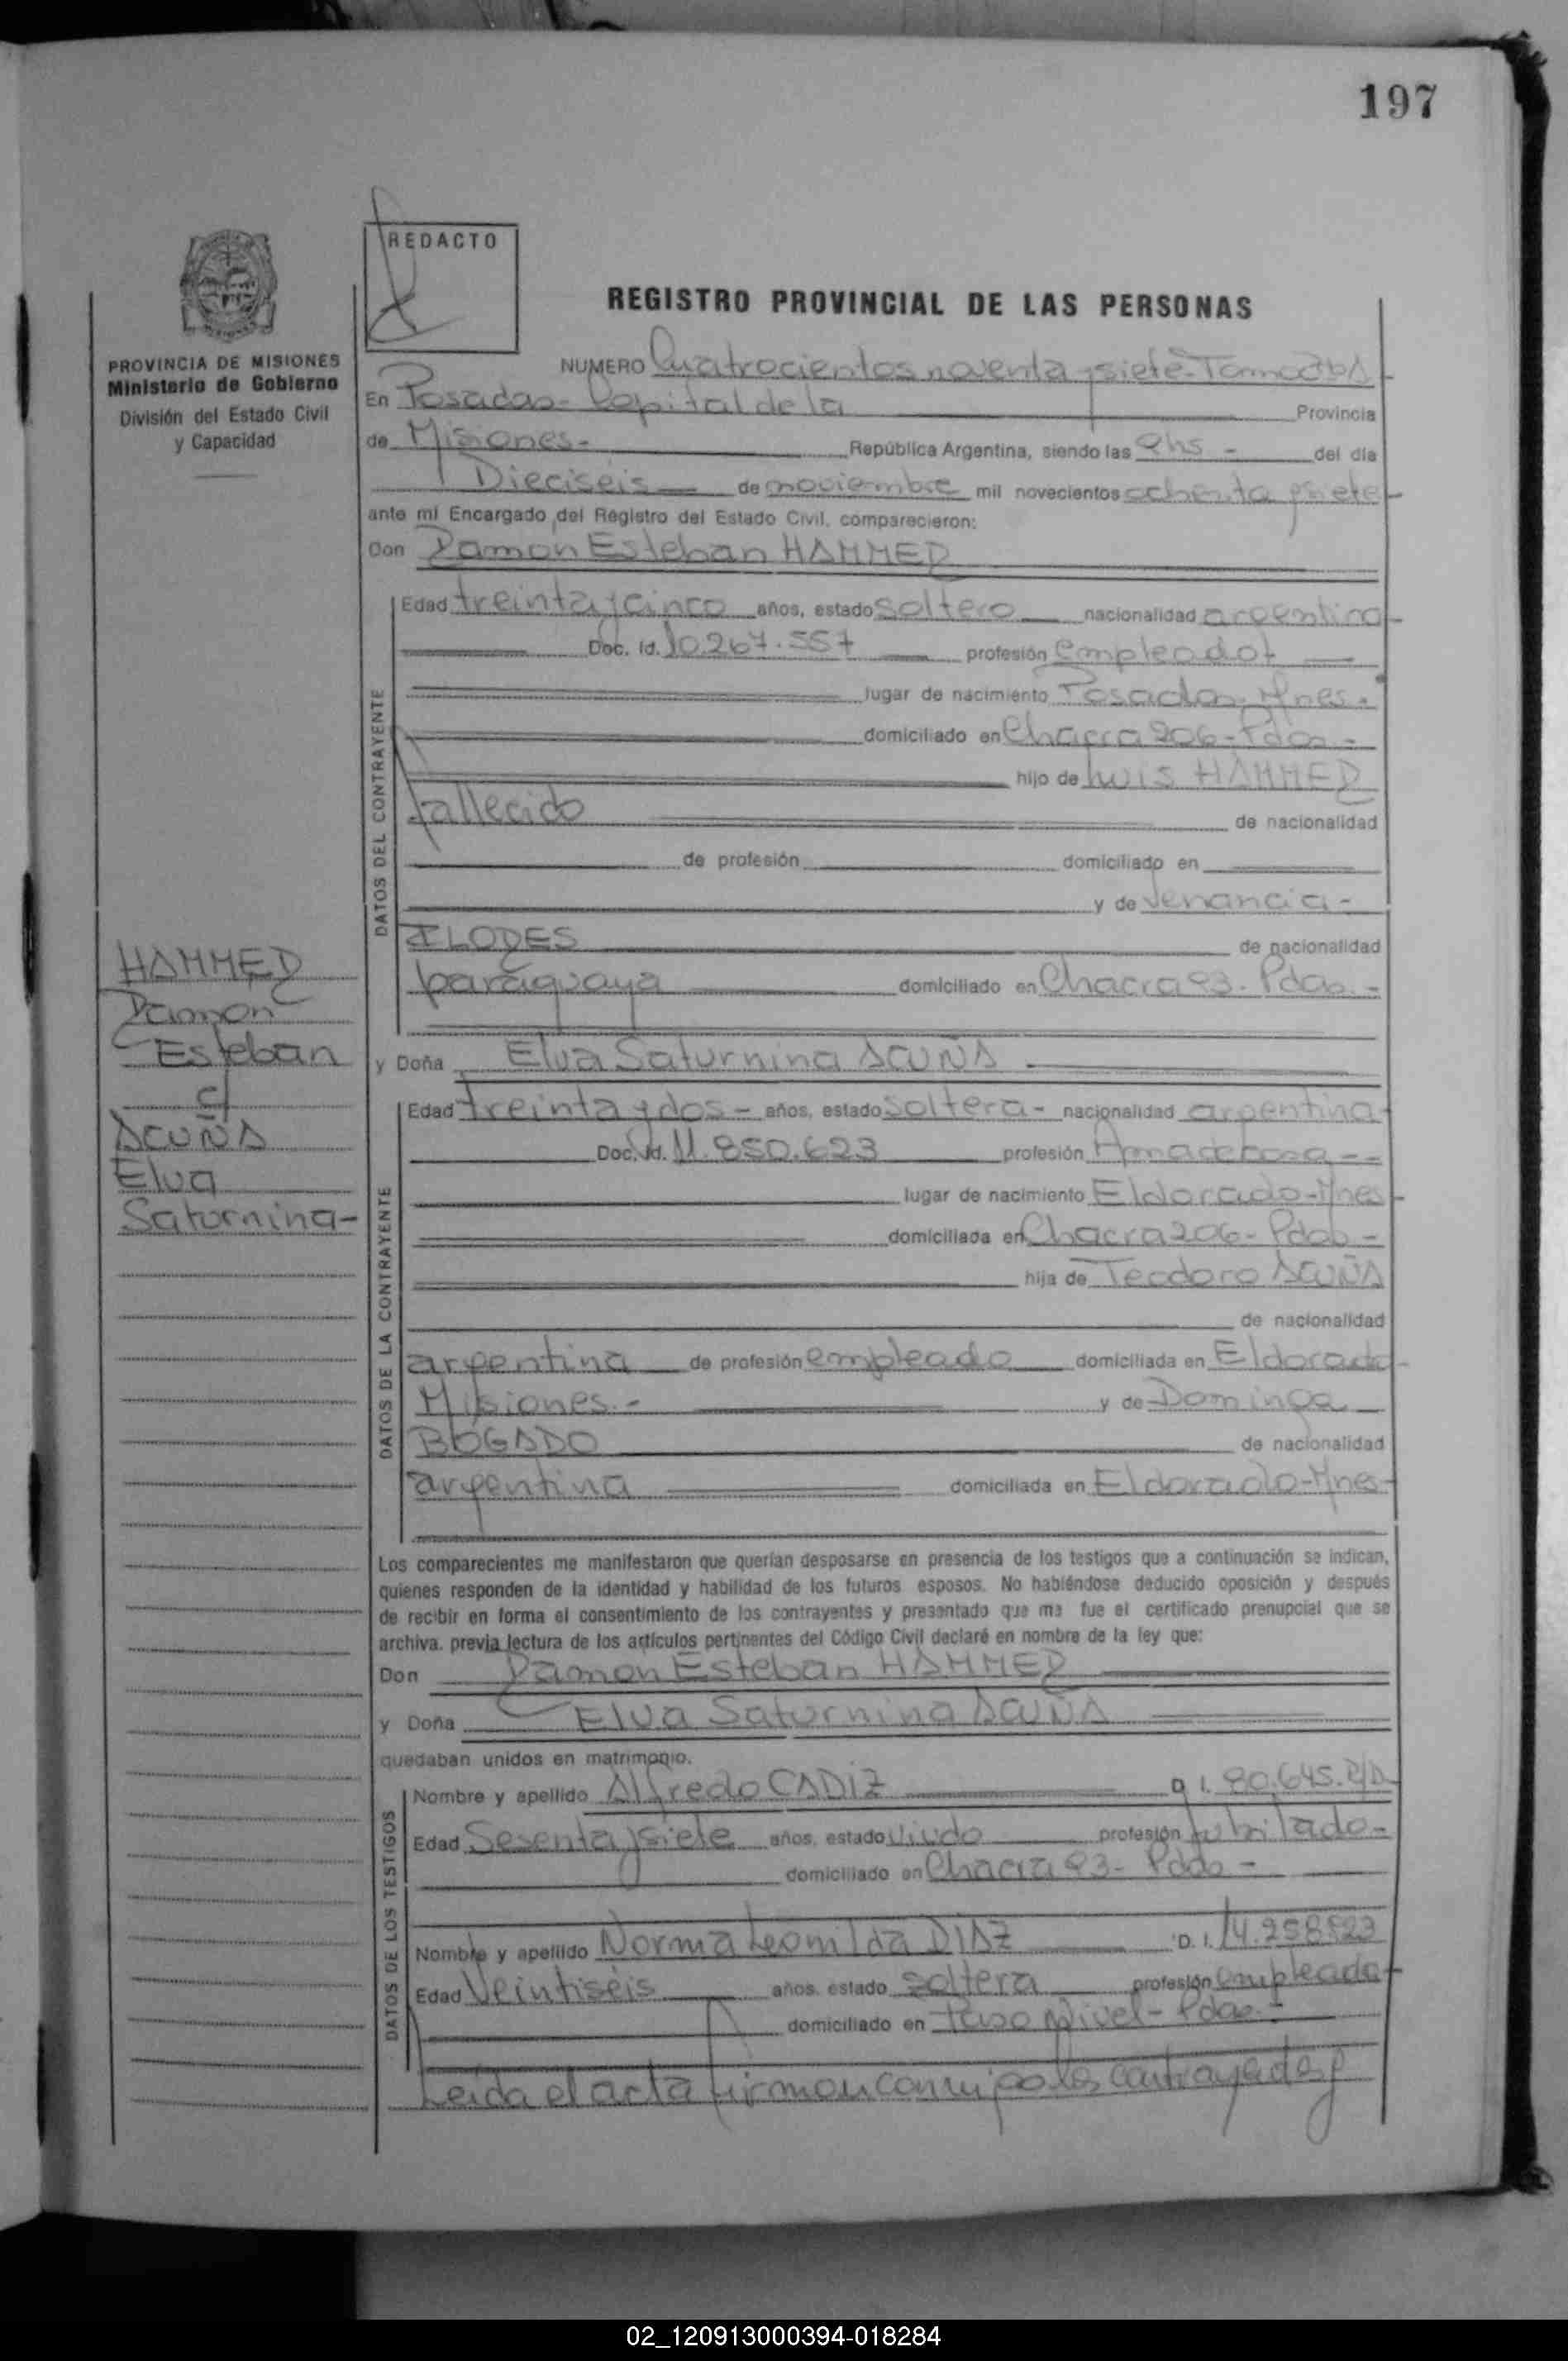 197
REDACTO
REGISTRO PROVINCIAL DE LAS PERSONAS
PROVINCIA DE MISIONES
Ministerio de Gobierno
División del Estado Civil
y Capacidad
NUMERO Cuatrocientos noventa y siete - Tomo
En Posadas - Capital de la Provincia
de Misiones.- República Argentina, siendo las hs - del día
Dieciséis de noviembre mil novecientos ochenta y siete
ante mí Encargado del Registro del Estado Civil, comparecieron:
Don Ramon Esteban HAMMED
DATOS DEL CONTRAYENTE
Edad treinta y cinco años, estado soltero nacionalidad argentina
Doc. Id. 10.267.557 profesión empleado
lugar de nacimiento Posadas - Mnes.
domiciliado en Chacra 206 - Pdas -
hijo de Luis HAMMED
fallecido de nacionalidad
de profesión domiciliado en
y de Venancia -
FLORES de nacionalidad
paraguaya domiciliado en Chacra 93 - Pdas. -
HAMMED
Ramon
Esteban
c/
ACUÑA
Elva
Saturnina -
y Doña Elva Saturnina ACUÑA
DATOS DE LA CONTRAYENTE
Edad treinta y dos - años, estado soltera - nacionalidad argentina -
Doc. Id. 11.850.623 profesión Ama de casa --
lugar de nacimiento Eldorado - Mnes
domiciliada en Chacra 206 - Pdas -
hija de Teodoro ACUÑA
de nacionalidad
argentina de profesión empleado domiciliada en Eldorado
Misiones.- y de Dominga
BOGADO de nacionalidad
argentina domiciliada en Eldorado - Mnes -
Los comparecientes me manifestaron que querían desposarse en presencia de los testigos que a continuación se indican,
quienes responden de la identidad y habilidad de los futuros esposos. No habiéndose deducido oposición y después
de recibir en forma el consentimiento de los contrayentes y presentado que me fue el certificado prenupcial que se
archiva, previa lectura de los artículos pertinentes del Código Civil declaré en nombre de la ley que:
Don Ramon Esteban HAMMED
y Doña Elva Saturnina ACUÑA
quedaban unidos en matrimonio.
DATOS DE LOS TESTIGOS
Nombre y apellido Alfredo CADIZ D. I. 80.645.
Edad Sesenta y siete años, estado viudo profesión jubilado -
domiciliado en Chacra 93 - Pdas -
Nombre y apellido Norma Leonilda DIAZ D. I. 14.258.823
Edad Veintiséis años, estado soltera profesión empleada
domiciliado en Paso Nivel - Pdas. -
Leida el acta firman conmigo los contrayentes y
02_120913000394-018284